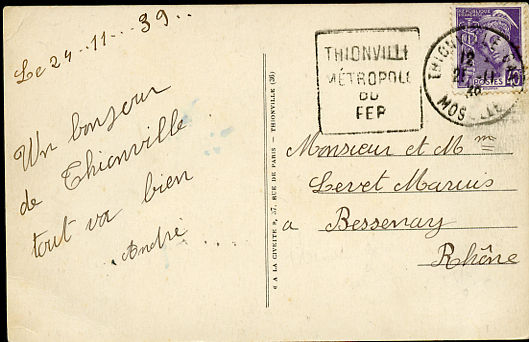 Le 24..11...39..
Un bonjour
de Thionville
tout va bien
André
D A LA CIVETTE P, 57, RUE DE PARIS - THIONVILLE (36)
THIONVILLE
MÉTROPOLE
DU
FER
RÉPUBLIQUE
FRANÇAISE
POSTES 40
THIONVILLE
11
MOSELLE
Monsieur et Mme
Levet Marius
a Bessenay
Rhône